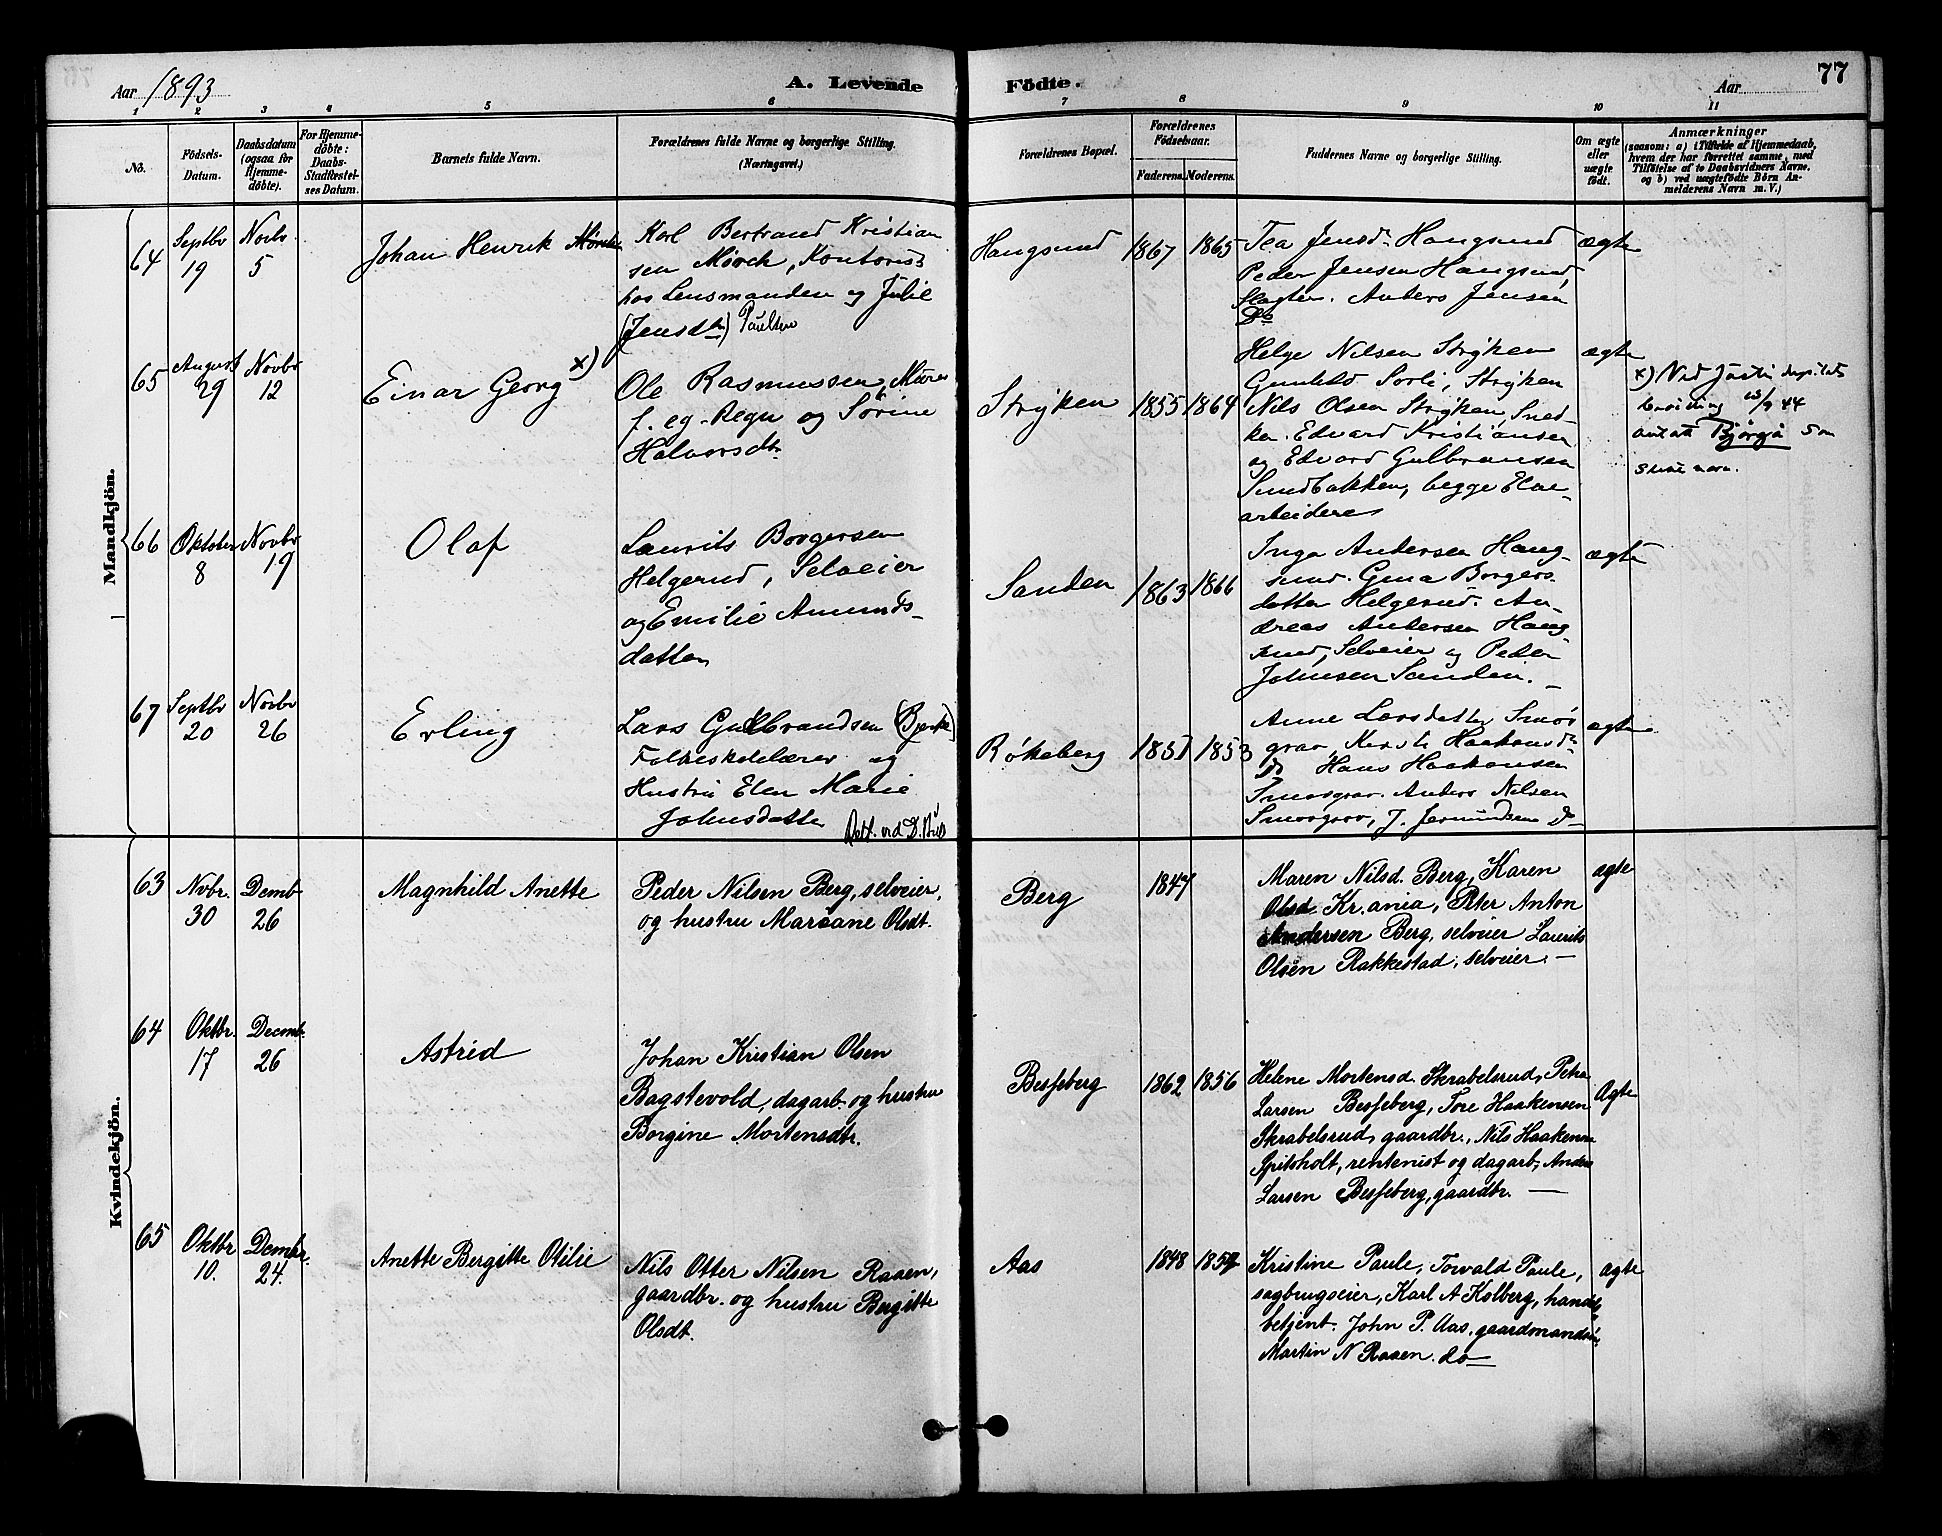 Aar 1893
A. Levende
Födte.
Aar
77
1 2 3 4 5 6 7 8 9 10 11
No.
Födsels-
Datum.
Daabsdatum
(ogsaa for
Hjemme-
döbte).
For Hjemme-
döbte:
Daabs-
Stadfæstel-
ses Datum.
Barnets fulde Navn.
Forældrenes fulde Navne og borgerlige Stilling.
(Næringsvei.)
Forældrenes Bopæl.
Forældrenes
Födselsaar.
Faderens. Moderens.
Faddernes Navne og borgerlige Stilling.
Om ægte
eller
uægte
født.
Anmærkninger
(saasom: a) i Tilfælde af Hjemmedaab,
hvem der har forrettet samme, med
Tilföielse af to Daabsvidners Navne,
og b) ved uægtefödte Börn An-
melderens Navn m. V.)
Mandkjön.
64
Septbr
19
Novbr
5
Johan Henrik Mørch
Karl Bertrand Kristian
sen Mørch, Kontorist
hos Lensmanden og Julie
(Jensdtr) Paulsen
Haugsund
1867
1865
Tea Jensdr Haugsund,
Peder Jensen Haugsund,
Slagter. Anders Jensen
Do
ægte
65
August
29
Novbr
12
Einar Georg x)
Ole Rasmussen, Murer
f. eg. Regn og Sørine
Halvorsdtr
Stryken
1855
1864
Helge Nilsen Stryken
Gunhild Sorli, Stryken
Nils Olsen Stryken, Sned-
ker. Edvard Kristiansen
og Edvard Gulbransen
Sundbakken, begge Elve-
arbeidere
ægte
x) Ved Justisdeptets
bevilling 15/9 44
antatt Bjørgå som
slektsnavn.
66
Oktober
8
Novbr
19
Olaf
Laurits Borgersen
Helgerud, Selveier
og Emilie Amunds-
datter
Sanden
1863
1866
Inga Andersen Haug-
sund. Gina Borgers
datter Helgerud. An-
dreas Andersen Haug
sund, Selveier og Peder
Johnsen Sanden.
ægte
67
Septbr
20
Novbr
26
Erling
Lars Gulbrandsen (Bjerke)
Folkeskolelærer og
Hustru Elen Marie
Johnsdatter
Røkeberg
1851
1853
Anne Larsdatter Smør
grav, Haakonsdr
Do Hans Haakonsen
Smørgrav. Anders Nilsen
Smørgrav, J. Jermundsen Do
ægte
Kvindekjön.
63
Novbr.
30
Demb
26
Magnhild Anette
Peder Nilsen Berg, selveier,
og hustru Marsane Olsdt.
Berg
1847
Maren Nilsd. Berg, Karen
Olsd. Kr.ania, Peter Anton
Andersen Berg, selveier Laurits
Olsen Rakkestad, selveier. —
ægte
64
Oktbr.
17
Decmb.
26
Astrid
Johan Kristian Olsen
Bagstevold, dagarb. og hustru
Borgine Mortensdtr.
Besseberg
1862
1856
Helene Mortensd. Skrabelsrud, Petra
Larsen Besseberg, Tore Haakensen
Skrabelsrud, gaardbr., Nils Haakensen
Spitsholt, rentenist og dagarb., Anders
Larsen Besseberg, gaardbr. —
Ægte
65
Oktbr
10.
Dembr.
24.
Anette Bergitte Otilie
Nils Otter Nilsen Raaen,
gaardbr. og hustru Bergitte
Olsdt.
Aas
1848
1854
Kristine Paule, Torvald Paule,
sagbrugseier, Karl A Kolberg, handels
betjent. John P. Aas, gaardmandsøn,
Martin N Raaen. do —
ægte